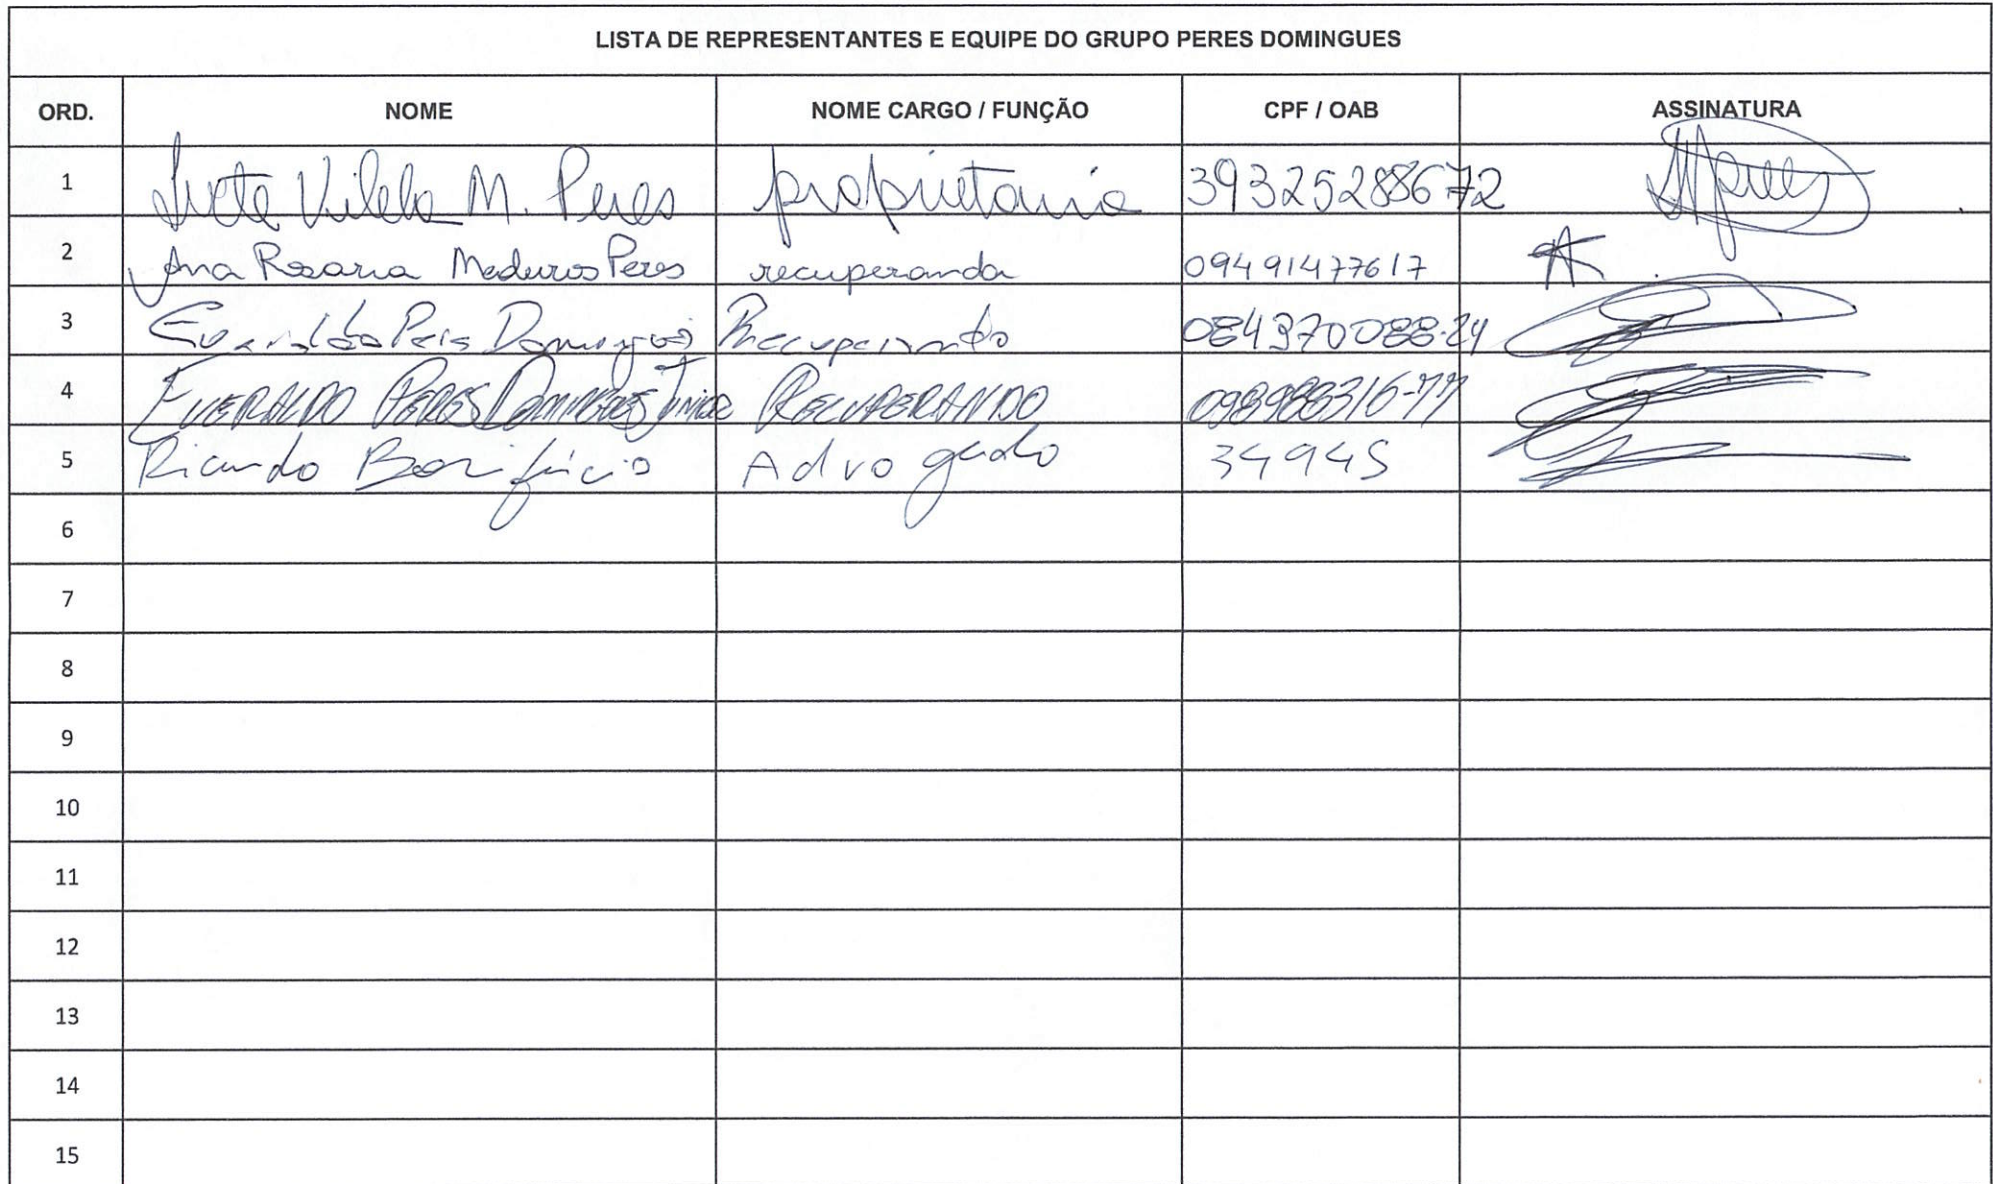 LISTA DE REPRESENTANTES E EQUIPE DO GRUPO PERES DOMINGUES
ORD. NOME NOME CARGO / FUNÇÃO CPF / OAB ASSINATURA
1 Vilela M. Peres proprietaria 39325288672
2 Ana Rosaria Medeiros Peres recuperanda 09491477617
3 Everaldo Peres Domingues Recuperando
4 EVERALDO PERES DOMINGUES JUNIOR RECUPERANDO
5 Ricardo Bonifácio Advogado 34945
6
7
8
9
10
11
12
13
14
15